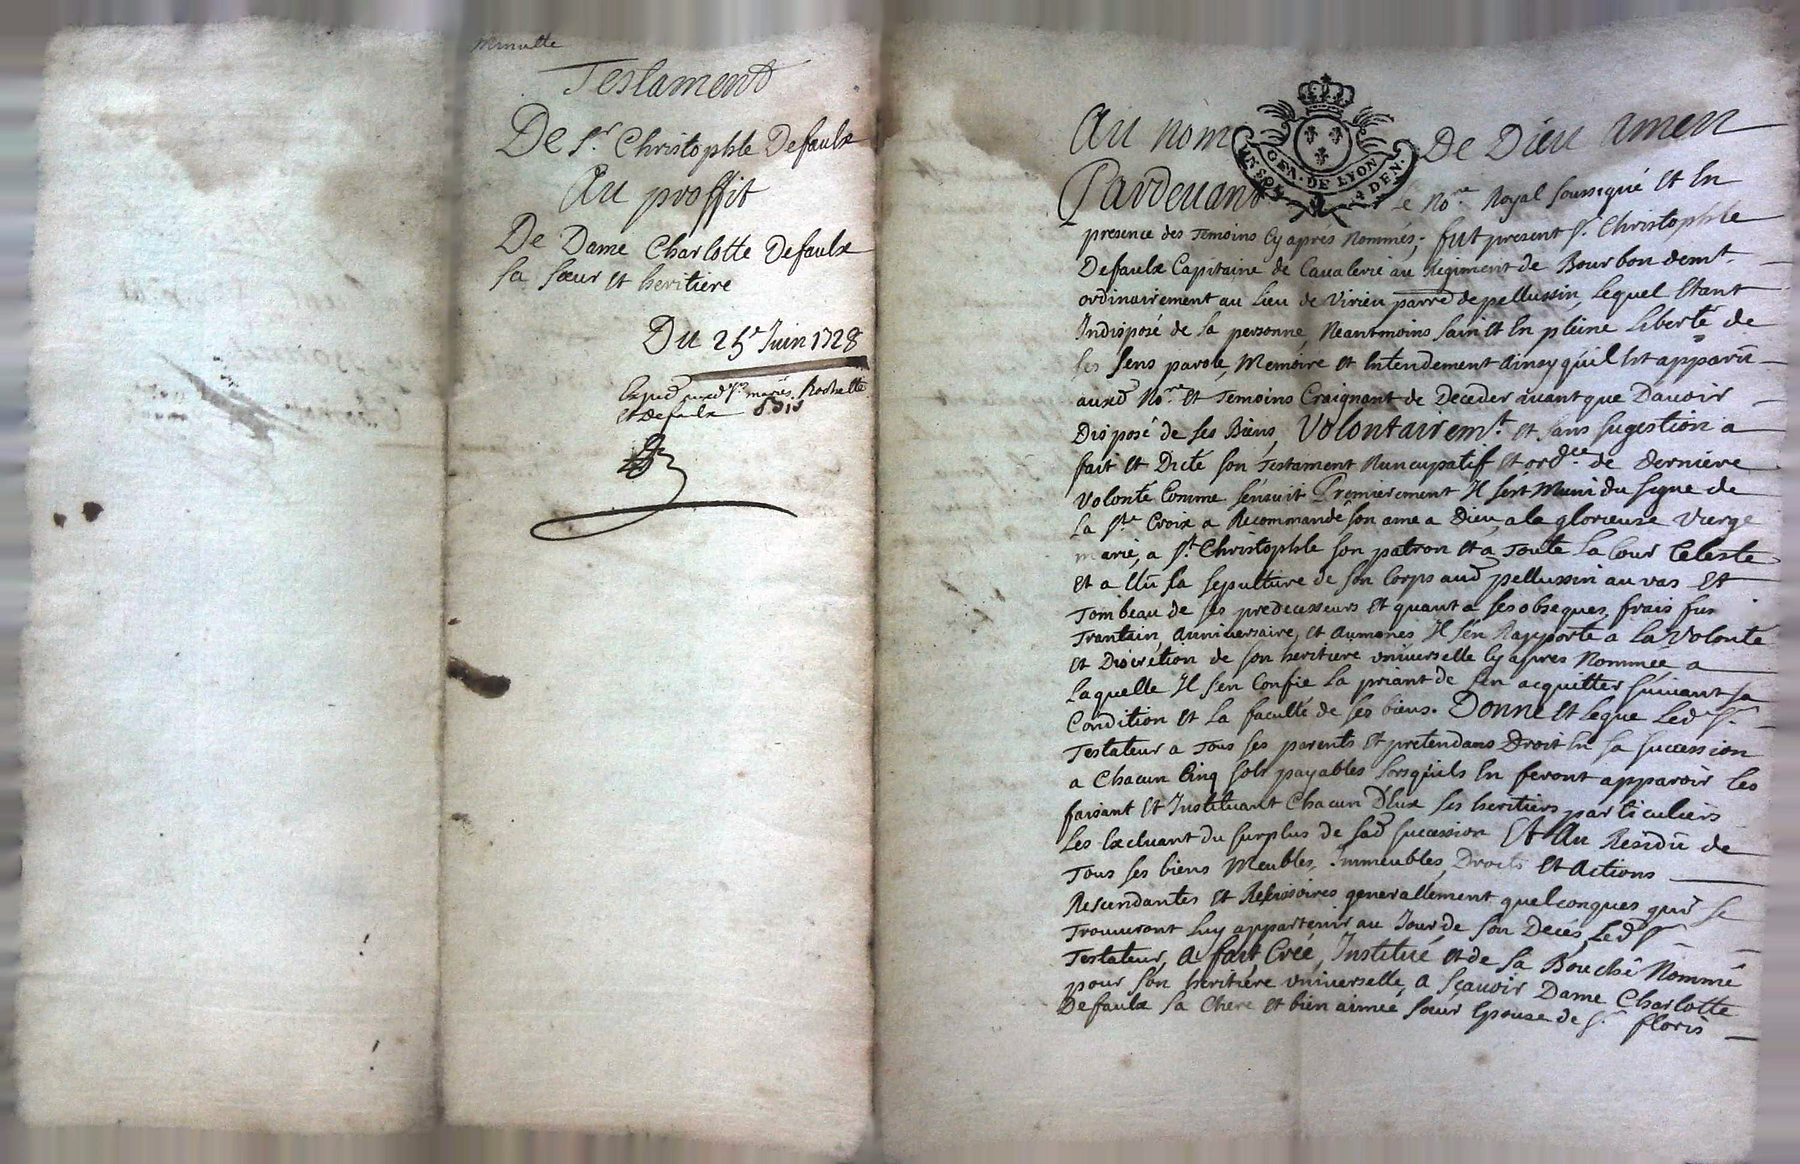 Minutte
Testament
De Sr. Christophle Defaulx
Au proffit
De Dame Charlotte Defaulx
Sa Sœur et heritiere
Du 25e Juin 1728
Exped mariés Rochette
et Defaulx
Au nom De Dieu amen
GEN. DE LYON
4 DEN.
Pardevant Le Nore Royal soussigné Et En
presence des Temoins Cy aprés Nommés, fut present Sr. Christophle
Defaulx Capitaine de Cavalerie au Regiment de Bourbon demt.
ordinairement au Lieu de Virieu parre de pellussin, Lequel Etant
Indisposé de Sa personne, Neantmoins Sain et En pleine Liberté de
Ses Sens parole, Memoire et Entendement ainsy quil Est apparû
auxd Nore. et Temoins Craignant de Deceder avant que Davoir
Disposé de Ses Biens, Volontairemt. et Sans Sugestion a
fait et Dicté Son Testament Nuncupatif et ordce. de derniere
Volonté Comme Sensuit Premierement Il Sest Muni du Signe de
La Ste Croix a Recommandé Son ame a Dieu, a la glorieuse Vierge
marie, a St. Christophle Son patron et a Toute La Cour Celeste
et a Elû Sa Sepulture de Son Corps aud pellussin au vas Et
Tombeau de Ses predecesseurs et quant a Ses obseques, frais fun
Trantain anniversaire, et aumones Il Sen Rapporte a La Volonté
et Discrétion de Son heritiere universelle Cy apres Nommée a
Laquelle Il Sen Confie La priant de Sen acquitter Suivant Sa
Condition et La faculté de Ses biens. Donne et Legue Led Sr.
Testateur a Tous Ses parents et pretendans Droit En Sa Succession
a Chacun Cinq Sols payables Lorsquils En feront apparoir Les
faisant et Instituant Chacun Deux Ses heritiers particuliers
Les Excluant du Surplus de Sad Succession Et Au Residû de
Tous Ses biens Meubles, Immeubles, Droits et Actions
Rescindantes et Rescisoires generallement quelconques qui Se
Trouveront Luy appartenir au Jour de Son Decés, Led Sr
Testateur, a fait Créé, Institué et de Sa Bouche Nommé
pour Son heritiere universelle, a Sçavoir Dame Charlotte
Defaulx Sa Chere et bien aimée Sœur Epouse de Sr. floris